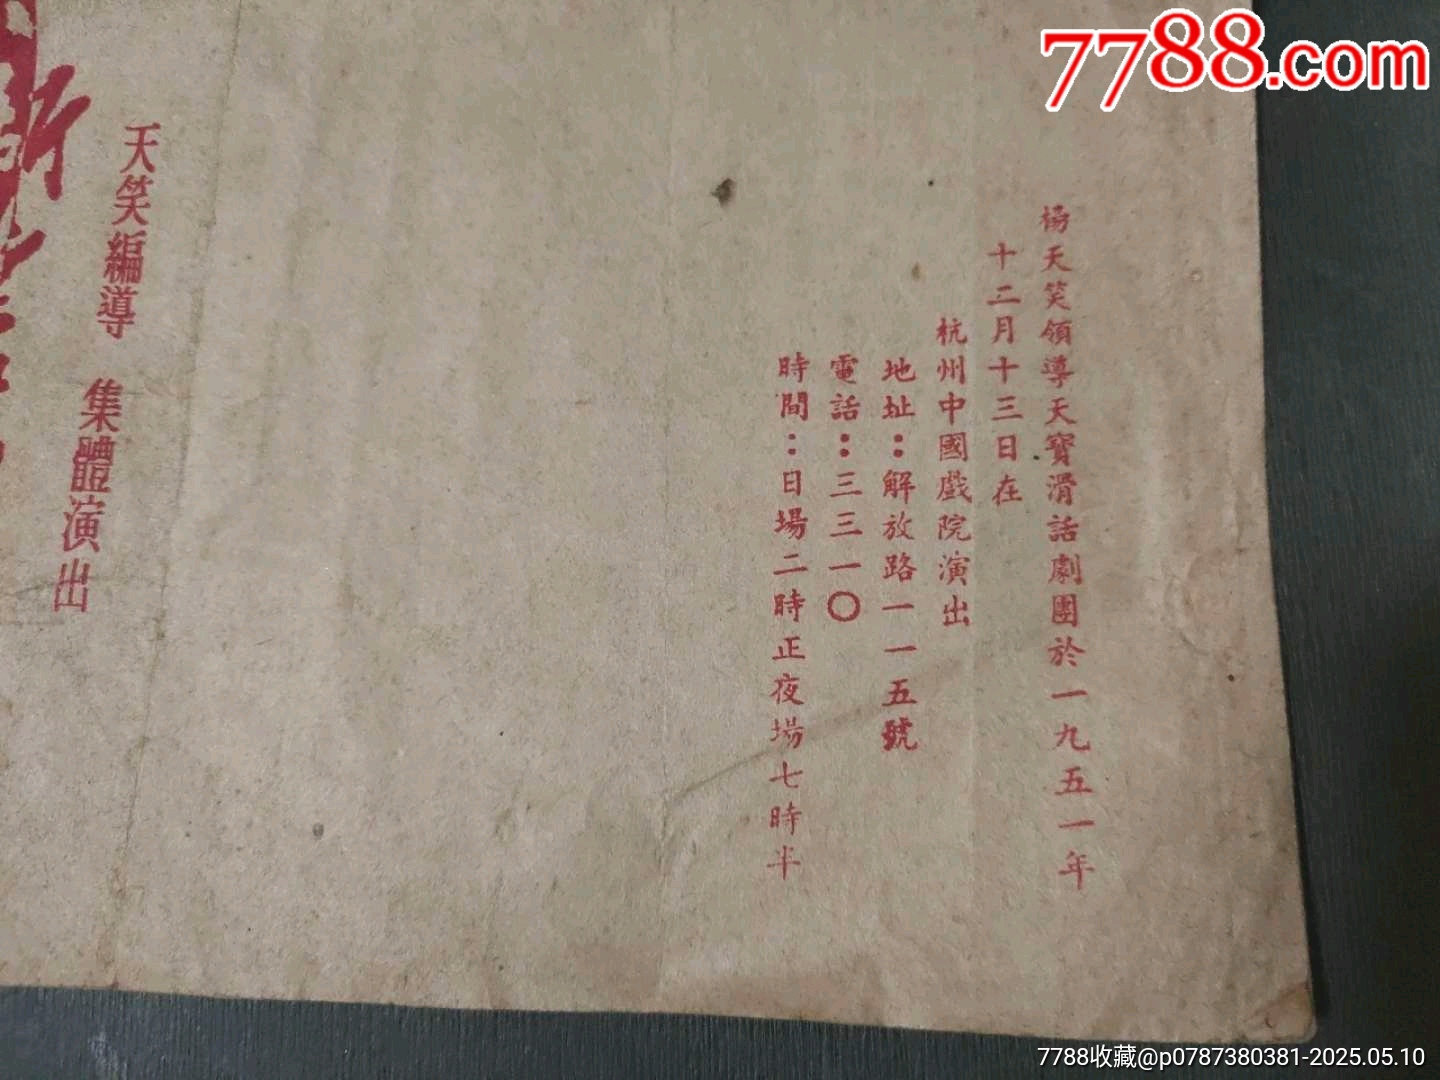 7788.com
楊天笑領導天寶滑話劇團於一九五一年
十二月十三日在
杭州中國戲院演出
地址：解放路一一五號
電話：三三一〇
時間：日場二時正夜場七時半
天笑編導 集體演出
新
7788收藏@p0787380381-2025.05.10